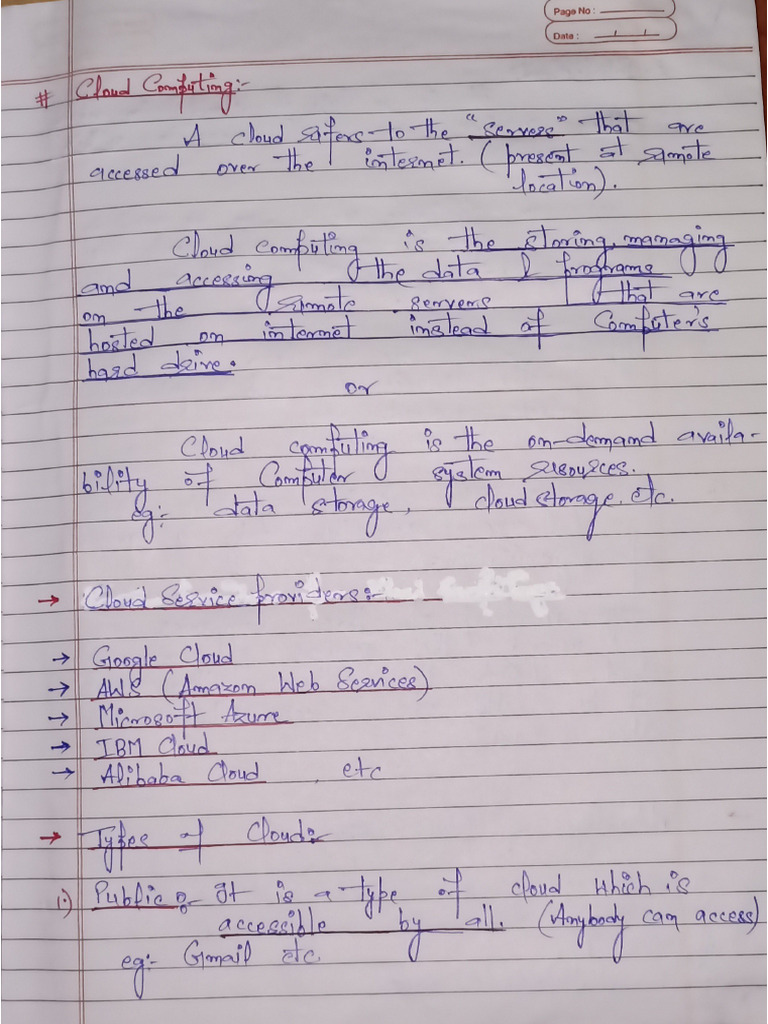 Page No :
Date :
# Cloud Computing:-
A cloud refers to the "servers" that are
accessed over the internet. (present at remote
location).
Cloud computing is the storing, managing
and accessing the data & programs
on the remote servers that are
hosted on internet instead of Computer's
hard drive.
or
Cloud computing is the on-demand availa-
bility of Computer system resources.
eg:- data storage, cloud storage etc.
→ Cloud Service Providers:-
→ Google Cloud
→ AWS (Amazon Web Services)
→ Microsoft Azure
→ IBM Cloud
→ Alibaba Cloud , etc
→ Types of Cloud:-
1.) Public :- It is a type of cloud which is
accessible by all. (Anybody can access)
eg:- Gmail etc.